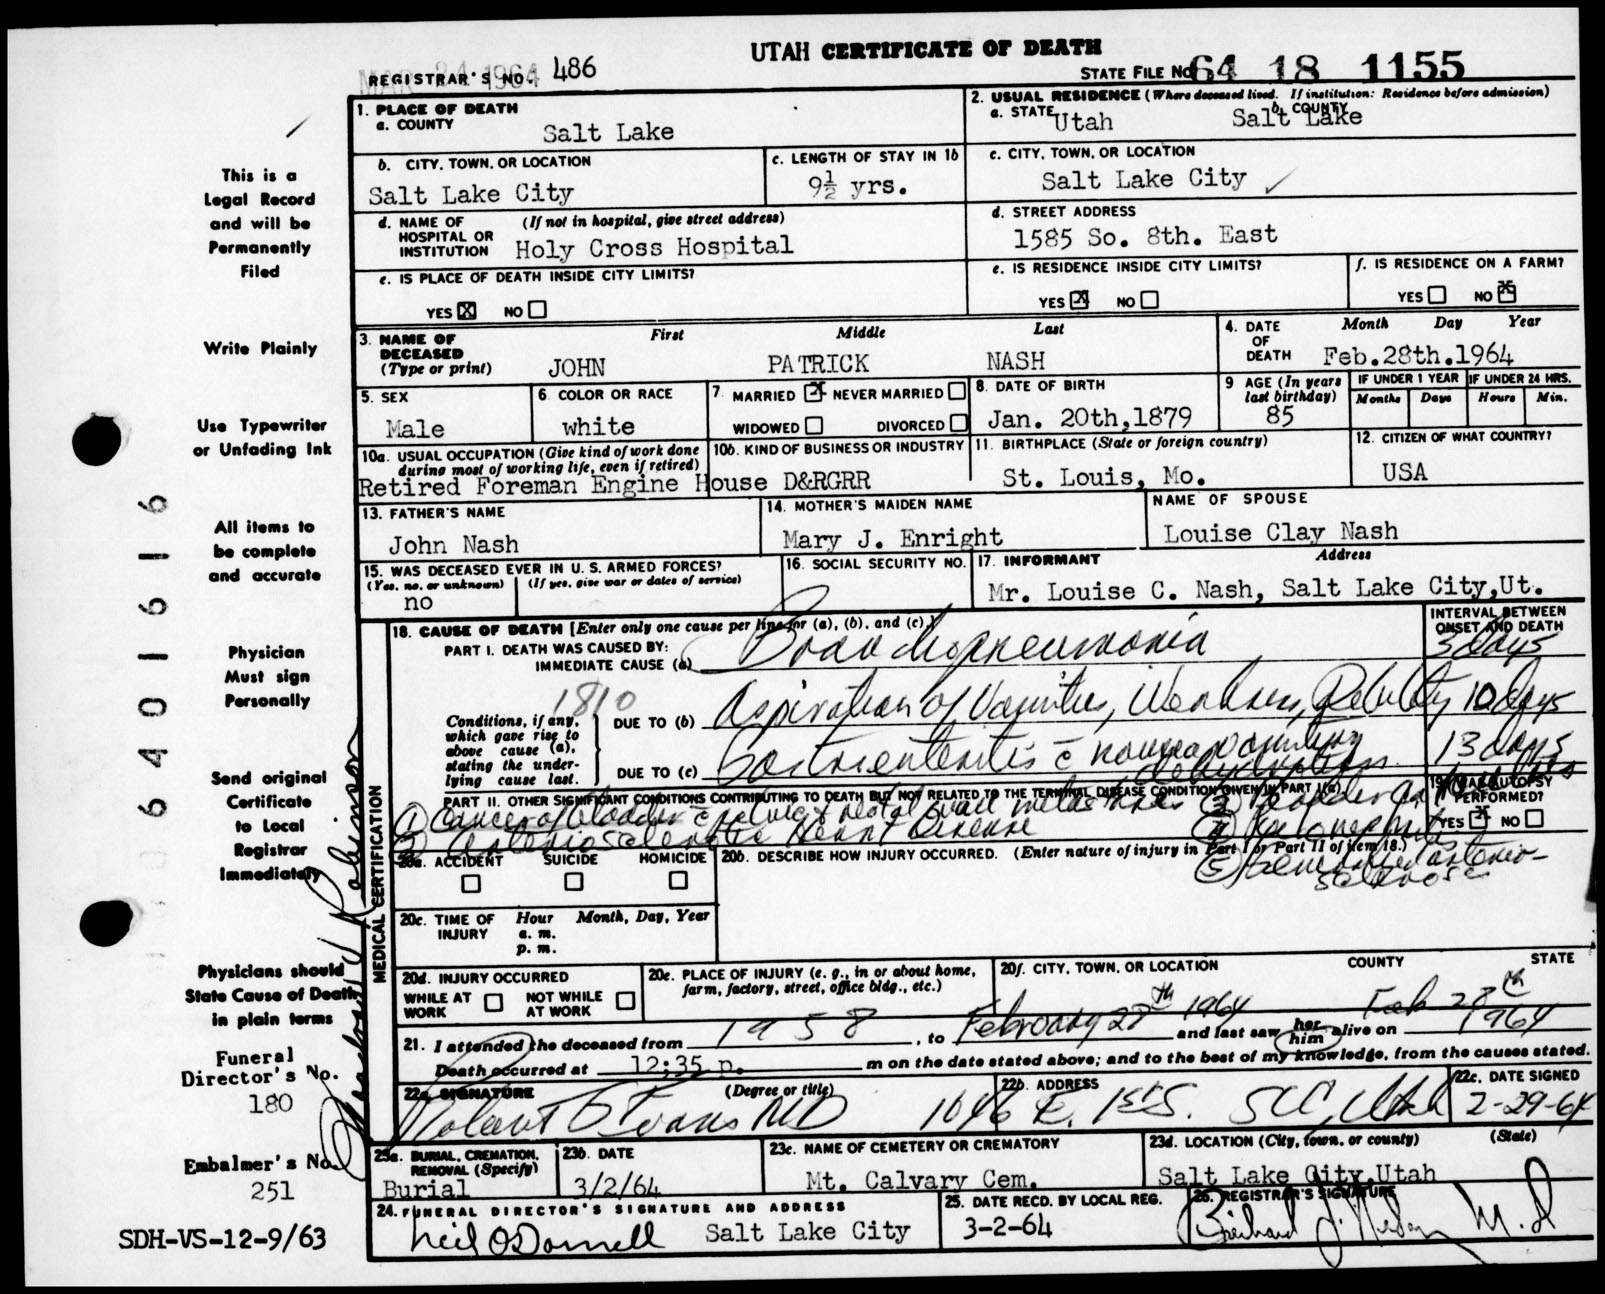 UTAH CERTIFICATE OF DEATH
MAR 24 1964
REGISTRAR'S NO. 486
STATE FILE NO. 64 18 1155
1. PLACE OF DEATH
a. COUNTY
Salt Lake
2. USUAL RESIDENCE (Where deceased lived. If institution: Residence before admission)
a. STATE Utah b. COUNTY Salt Lake
b. CITY, TOWN, OR LOCATION
Salt Lake City
c. LENGTH OF STAY IN 1b
9½ yrs.
c. CITY, TOWN, OR LOCATION
Salt Lake City
d. NAME OF HOSPITAL OR INSTITUTION (If not in hospital, give street address)
Holy Cross Hospital
d. STREET ADDRESS
1585 So. 8th. East
e. IS PLACE OF DEATH INSIDE CITY LIMITS?
YES X NO
e. IS RESIDENCE INSIDE CITY LIMITS?
YES X NO
f. IS RESIDENCE ON A FARM?
YES NO X
3. NAME OF DECEASED (Type or print)
First Middle Last
JOHN PATRICK NASH
4. DATE OF DEATH Month Day Year
Feb.28th.1964
5. SEX
Male
6. COLOR OR RACE
white
7. MARRIED X NEVER MARRIED
WIDOWED DIVORCED
8. DATE OF BIRTH
Jan. 20th,1879
9 AGE (In years last birthday)
85
IF UNDER 1 YEAR IF UNDER 24 HRS.
Months Days Hours Min.
10a. USUAL OCCUPATION (Give kind of work done during most of working life, even if retired)
10b. KIND OF BUSINESS OR INDUSTRY
Retired Foreman Engine House D&RGRR
11. BIRTHPLACE (State or foreign country)
St. Louis, Mo.
12. CITIZEN OF WHAT COUNTRY?
USA
13. FATHER'S NAME
John Nash
14. MOTHER'S MAIDEN NAME
Mary J. Enright
NAME OF SPOUSE
Louise Clay Nash
15. WAS DECEASED EVER IN U. S. ARMED FORCES?
(Yes, no, or unknown) (If yes, give war or dates of service)
no
16. SOCIAL SECURITY NO.
17. INFORMANT Address
Mr. Louise C. Nash, Salt Lake City,Ut.
MEDICAL CERTIFICATION
18. CAUSE OF DEATH [Enter only one cause per line for (a), (b), and (c).]
INTERVAL BETWEEN ONSET AND DEATH
PART I. DEATH WAS CAUSED BY:
IMMEDIATE CAUSE (a) Bronchopneumonia 3 days
1810
Conditions, if any, which gave rise to above cause (a), stating the underlying cause last.
DUE TO (b) Aspiration of Vomitus, Weakness, Debility 10 days
DUE TO (c) Gastroenteritis c̄ nausea vomiting dehydration 13 days
PART II. OTHER SIGNIFICANT CONDITIONS CONTRIBUTING TO DEATH BUT NOT RELATED TO THE TERMINAL DISEASE CONDITION GIVEN IN PART I(a)
① Cancer of bladder c̄ pelvic & metastases
② Arteriosclerotic Heart Disease
③ Bladder
④ Pyelonephritis
⑤ Generalized arterio-
sclerosis
19. WAS AUTOPSY PERFORMED?
YES X NO
20a. ACCIDENT SUICIDE HOMICIDE
20b. DESCRIBE HOW INJURY OCCURRED. (Enter nature of injury in Part I or Part II of item 18.)
20c. TIME OF INJURY Hour Month, Day, Year
a. m.
p. m.
20d. INJURY OCCURRED
WHILE AT WORK NOT WHILE AT WORK
20e. PLACE OF INJURY (e. g., in or about home, farm, factory, street, office bldg., etc.)
20f. CITY, TOWN, OR LOCATION COUNTY STATE
21. I attended the deceased from 1958, to February 28th 1964 and last saw her him alive on Feb 28th 1964
Death occurred at 12;35 p. m on the date stated above; and to the best of my knowledge, from the causes stated.
22a. SIGNATURE (Degree or title)
Robert Evans MD
22b. ADDRESS
1046 E. 1st S. SLC, Utah
22c. DATE SIGNED
2-29-64
23a. BURIAL, CREMATION, REMOVAL (Specify)
Burial
23b. DATE
3/2/64
23c. NAME OF CEMETERY OR CREMATORY
Mt. Calvary Cem.
23d. LOCATION (City, town, or county) (State)
Salt Lake City,Utah
24. FUNERAL DIRECTOR'S SIGNATURE AND ADDRESS
Neil O'Donnell Salt Lake City
25. DATE RECD. BY LOCAL REG.
3-2-64
26. REGISTRAR'S SIGNATURE
M.D
This is a
Legal Record
and will be
Permanently
Filed
Write Plainly
Use Typewriter
or Unfading Ink
All items to
be complete
and accurate
Physician
Must sign
Personally
Send original
Certificate
to Local
Registrar
Immediately
Physicians should
State Cause of Death
in plain terms
Funeral
Director's No.
180
Embalmer's No.
251
SDH-VS-12-9/63
Robinson
64016116